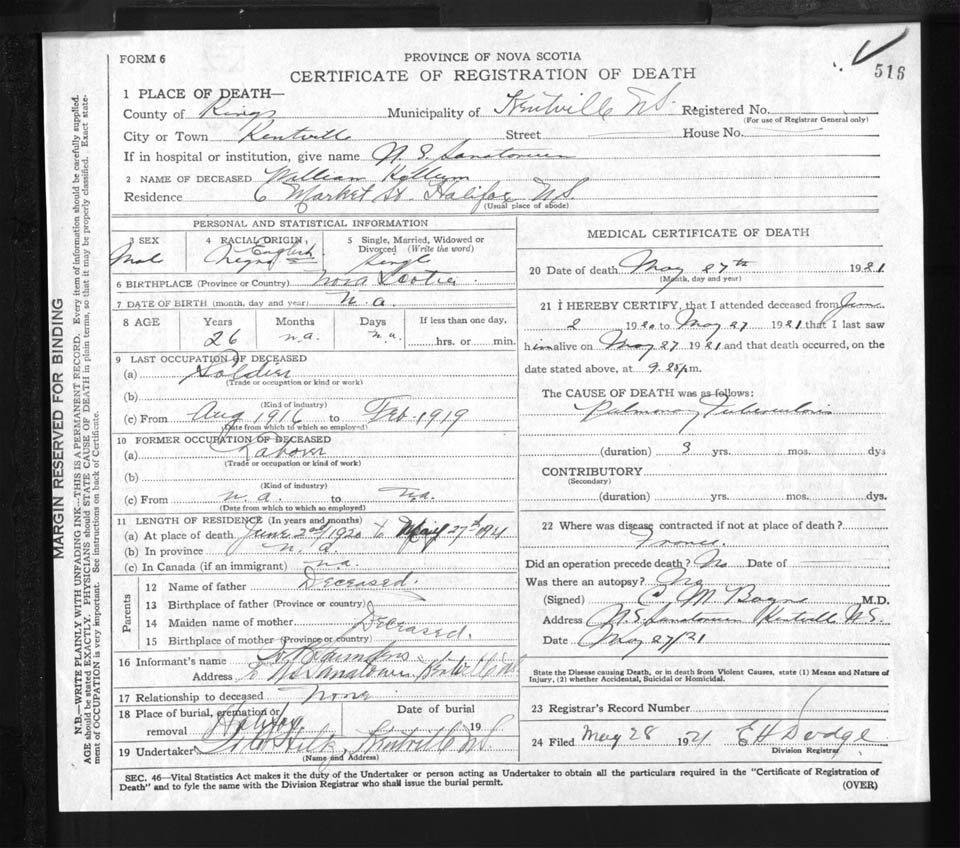 516
FORM 6
PROVINCE OF NOVA SCOTIA
CERTIFICATE OF REGISTRATION OF DEATH
MARGIN RESERVED FOR BINDING
N.B.—WRITE PLAINLY WITH UNFADING INK—THIS IS A PERMANENT RECORD. Every item of information should be carefully supplied.
AGE should be stated EXACTLY. PHYSICIANS should STATE CAUSE OF DEATH in plain terms, so that it may be properly classified. Exact state-
ment of OCCUPATION is very important. See instructions on back of Certificate.
1 PLACE OF DEATH—
County of Kings Municipality of Kentville N.S. Registered No.
(For use of Registrar General only)
City or Town Kentville Street House No.
If in hospital or institution, give name N. S. Sanatorium
2 NAME OF DECEASED William
Residence 6 Market St. Halifax N.S.
(Usual place of abode)
PERSONAL AND STATISTICAL INFORMATION
3 SEX
Male
4 RACIAL ORIGIN
English
Negro
5 Single, Married, Widowed or Divorced (Write the word)
Single
6 BIRTHPLACE (Province or Country) Nova Scotia
7 DATE OF BIRTH (month, day and year) n.a.
8 AGE Years Months Days If less than one day,
26 n.a. n.a. hrs. or min.
9 LAST OCCUPATION OF DECEASED
(a) Soldier
(Trade or occupation or kind or work)
(b)
(Kind of industry)
(c) From Aug 1916 to Feb. 1919
(Date from which to which so employed)
10 FORMER OCCUPATION OF DECEASED
(a) Laborer
(Trade or occupation or kind of work)
(b)
(Kind of industry)
(c) From n.a. to n.a.
(Date from which to which so employed)
11 LENGTH OF RESIDENCE (In years and months)
(a) At place of death June 2nd 1920 to May 27th 1921
(b) In province n.a.
(c) In Canada (if an immigrant) n.a.
Parents
12 Name of father Deceased.
13 Birthplace of father (Province or country)
14 Maiden name of mother Deceased.
15 Birthplace of mother (Province or country)
16 Informant's name
Address c/o N.S. Sanatorium, Kentville N.S.
17 Relationship to deceased None
18 Place of burial, cremation or removal Halifax Date of burial 19
19 Undertaker Kentville N.S.
(Name and Address)
MEDICAL CERTIFICATE OF DEATH
20 Date of death May 27th 1921
(Month, day and year)
21 I HEREBY CERTIFY, that I attended deceased from June
2 1920 to May 27 1921 that I last saw
him alive on May 27 1921 and that death occurred, on the
date stated above, at 9.25 p.m.
The CAUSE OF DEATH was as follows:
Pulmonary Tuberculosis
(duration) 3 yrs. mos. dys
CONTRIBUTORY
(Secondary)
(duration) yrs. mos. dys.
22 Where was disease contracted if not at place of death?
France.
Did an operation precede death? No Date of
Was there an autopsy? No
(Signed) C M Bayne M.D.
Address N.S. Sanatorium Kentville N.S.
Date May 27/21
State the Disease causing Death, or in death from Violent Causes, state (1) Means and Nature of Injury, (2) whether Accidental, Suicidal or Homicidal.
23 Registrar's Record Number
24 Filed May 28 1921 E H Dodge
Division Registrar
SEC. 46—Vital Statistics Act makes it the duty of the Undertaker or person acting as Undertaker to obtain all the particulars required in the "Certificate of Registration of
Death" and to fyle the same with the Division Registrar who shall issue the burial permit.
(OVER)